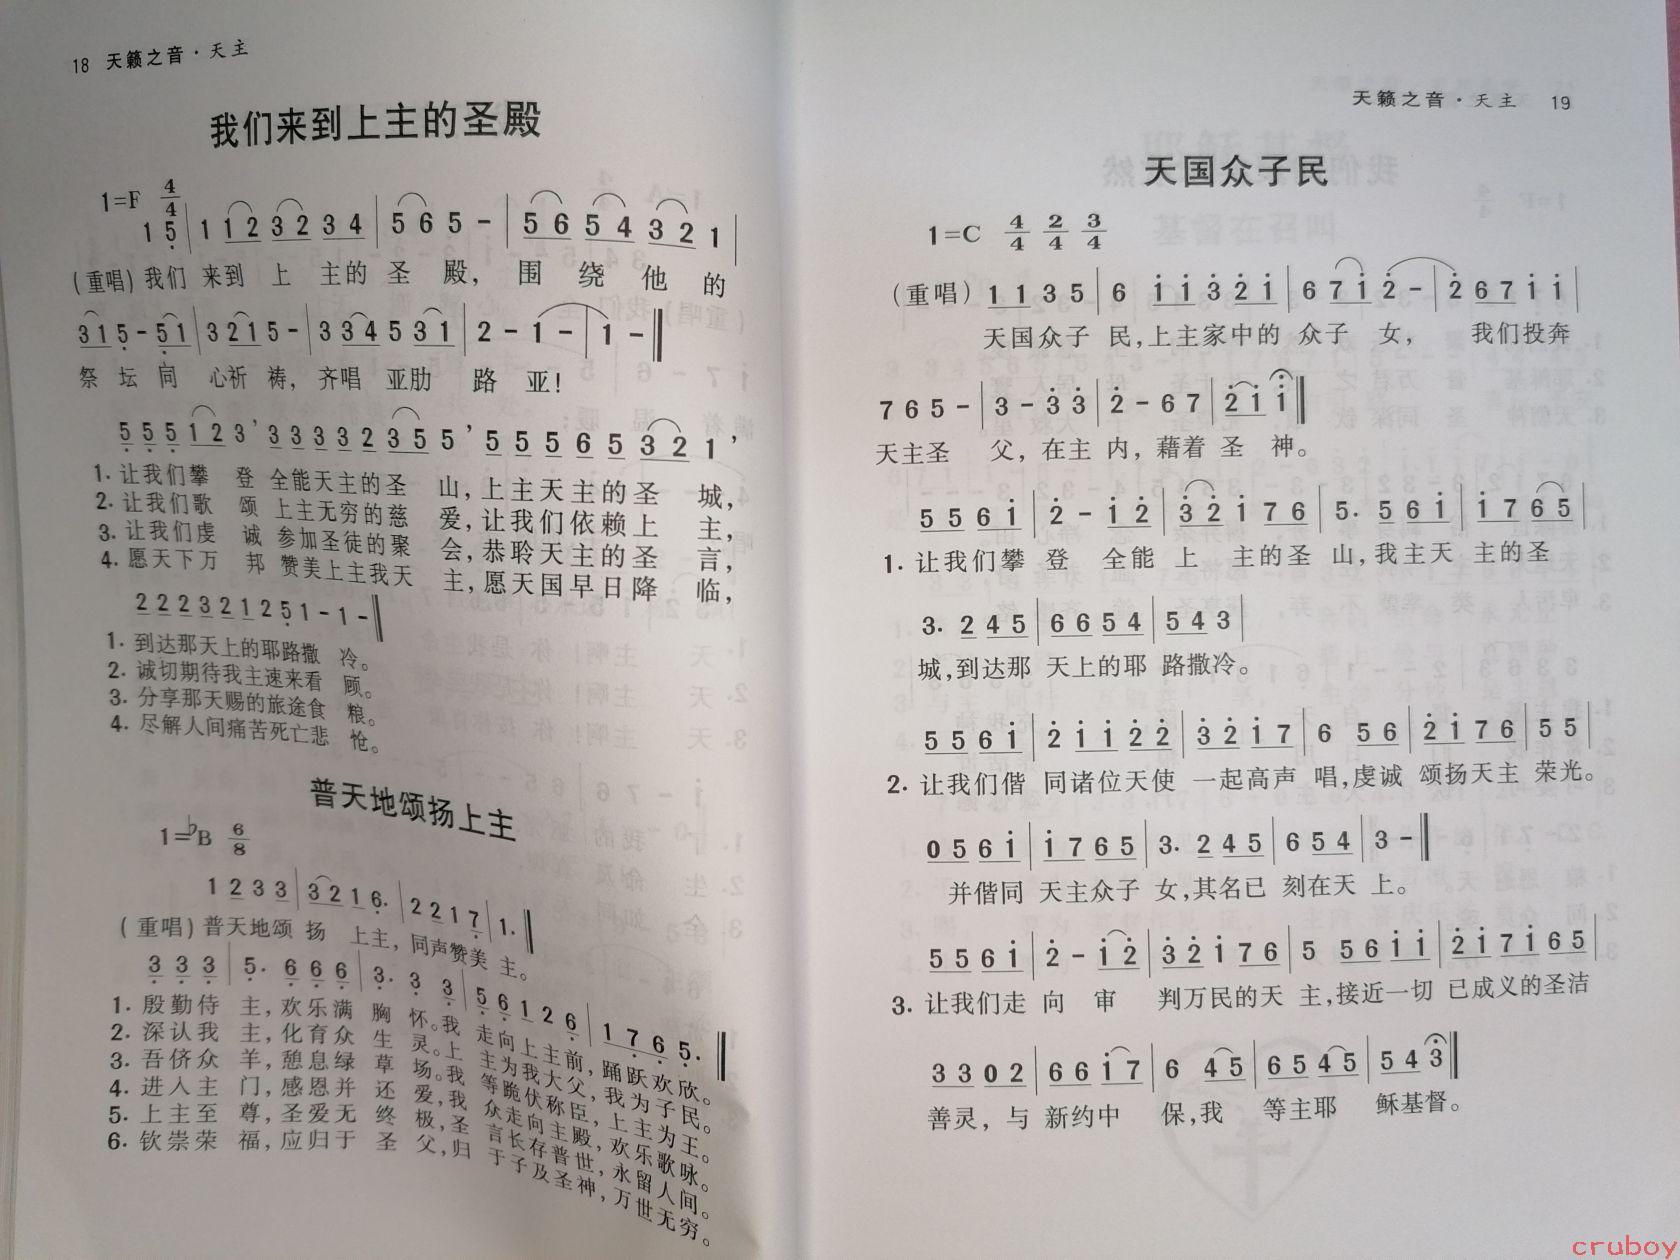 18 天籁之音·天主
我们来到上主的圣殿
1=F 4/4
1 5 | 1 1 2 3 2 3 4 | 5 6 5 - | 5 6 5 4 3 2 1 |
(重唱) 我们 来到 上 主的 圣 殿， 围 绕 他 的
3 1 5 - 5 1 | 3 2 1 5 - | 3 3 4 5 3 1 | 2 - 1 - | 1 - ‖
祭 坛 同 心祈 祷， 齐唱 亚肋 路 亚！
5 5 5 1 2 3 ’ 3 3 3 3 2 3 5 5 ’ 5 5 5 6 5 3 2 1 ’
1. 让我们攀 登 全能天主的圣 山，上主天主的圣 城，
2. 让我们歌 颂 上主无穷的慈 爱，让我们依赖上 主，
3. 让我们虔 诚 参加圣徒的聚 会，恭聆天主的圣 言，
4. 愿天下万 邦 赞美上主我天 主，愿天国早日降 临，
2 2 2 3 2 1 2 5 1 - 1 - ‖
1. 到达那天上的耶路撒 冷。
2. 诚切期待我主速来看 顾。
3. 分享那天赐的旅途食 粮。
4. 尽解人间痛苦死亡悲 怆。
普天地颂扬上主
1=♭B 6/8
1 2 3 3 | 3 2 1 6. | 2 2 1 7 | 1. ‖
(重唱) 普天地颂 扬 上主，同声赞美 主。
3 3 3 | 5. 6 6 6 | 3. 3 3 | 5 6 1 2 6 | 1 7 6 5. ‖
1. 殷勤侍 主，欢乐满 胸 怀。我 走向上主前，踊跃欢欣。
2. 深认我 主，化育众 生 灵。上 主为我大父，我为子民。
3. 吾侪众 羊，憩息绿 草 场。我 等跪伏称臣，上主为王。
4. 进入主 门，感恩并 还 爱，我 众走向主殿，欢乐歌咏。
5. 上主至 尊，圣爱无 终 极，圣 言长存普世，永留人间。
6. 钦崇荣 福，应归于 圣 父，归 于子及圣神，万世无穷。
天籁之音·天主 19
天国众子民
1=C 4/4 2/4 3/4
(重唱) 1 1 3 5 | 6 i i 3 2 i | 6 7 i 2 - | 2 6 7 i i |
天国众子 民，上主家中的 众子 女， 我们投奔
7 6 5 - | 3 - 3 3 | 2 - 6 7 | 2 i i ‖
天主圣 父，在主 内，藉着 圣 神。
5 5 6 i | 2 - i 2 | 3 2 i 7 6 | 5. 5 6 i | i 7 6 5 |
1. 让我们攀 登 全能 上 主的圣 山，我主天 主的圣
3. 2 4 5 | 6 6 5 4 | 5 4 3 |
城，到达那 天上的耶 路撒冷。
5 5 6 i | 2 i i 2 2 | 3 2 i 7 | 6 5 6 | 2 i 7 6 | 5 5 |
2. 让我们偕 同诸位天使 一起高声 唱，虔诚 颂扬天主 荣光。
0 5 6 i | i 7 6 5 | 3. 2 4 5 | 6 5 4 | 3 - ‖
并偕同 天主众子 女，其名已 刻在天 上。
5 5 6 i | 2 - i 2 | 3 2 i 7 6 | 5 5 6 i i | 2 i 7 i 6 5 |
3. 让我们走 向 审 判万民的天 主，接近一切 已成义的圣洁
3 3 0 2 | 6 6 i 7 | 6 4 5 | 6 5 4 5 | 5 4 3 ‖
善灵，与 新约中 保，我 等主耶 稣基督。
cruboy